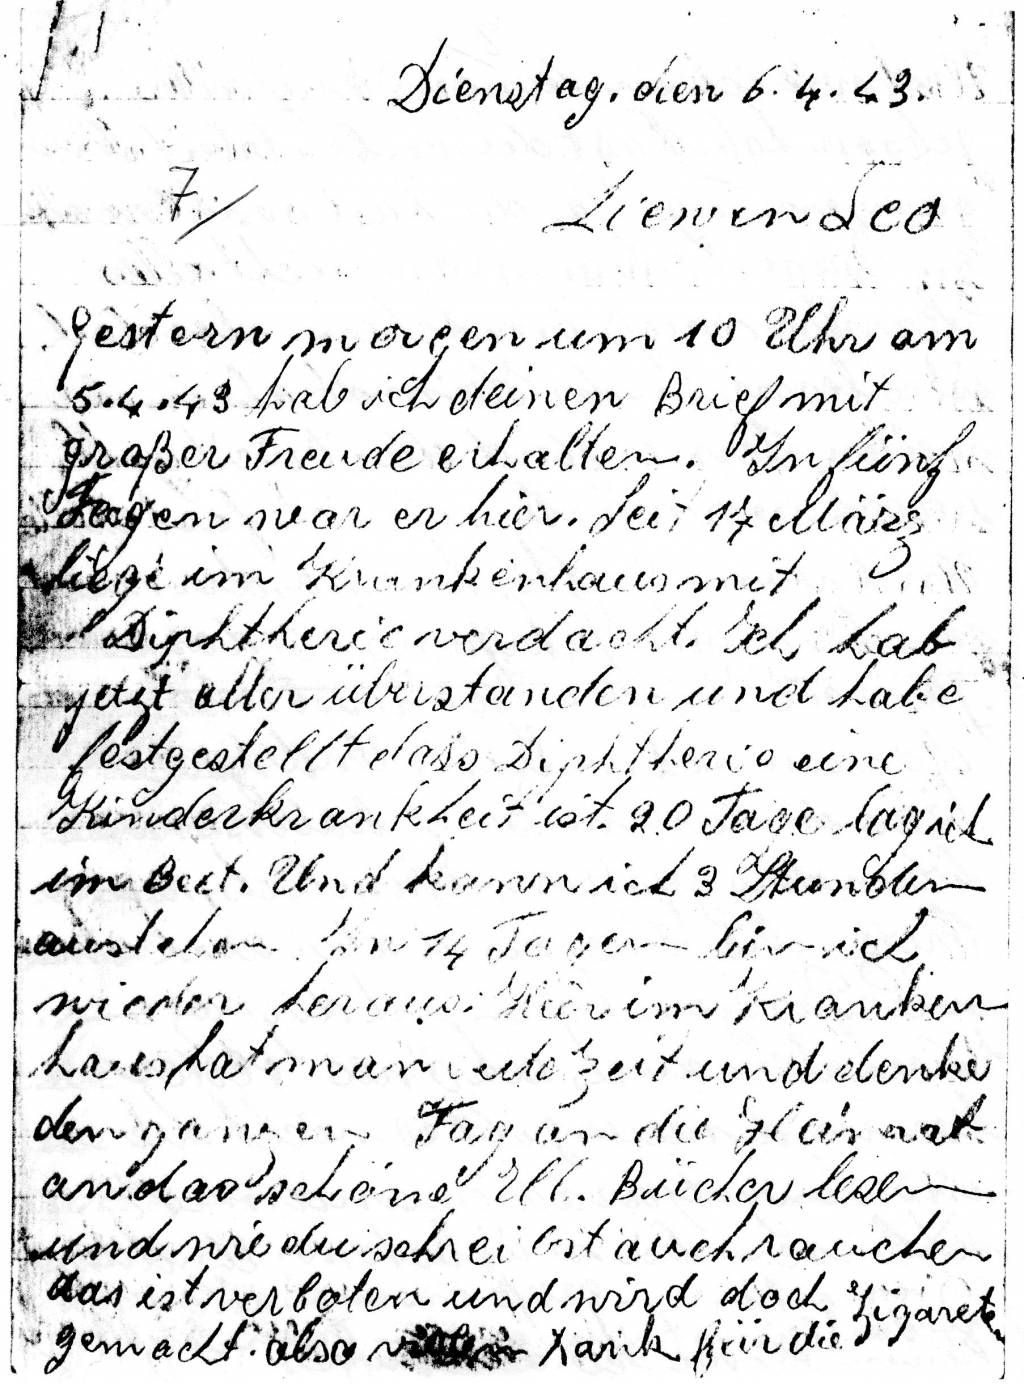 Dienstag. den 6.4.43.
7/
Liewen Leo
Gestern morgen um 10 Uhr am
5.4.43 hab ich deinen Brief mit
großer Freude erhalten. In fünf
Tagen war er hier. Seit 17 März
liege im Krankenhaus mit
Diphtherieverdacht. Ich hab
jetzt alles überstanden und habe
festgestellt dass Diphtherie eine
Kinderkrankheit ist. 20 Tage lag ich
im Bett. Und kann ich 3 Stunden
In 14 Tagen bin ich
wieder heraus. Hier im Kranken
haus hat man Zeit und denke
den ganzen Tag an die Heimat
an das schöne Ell. Bücher lesen
und wie du schreibst auch rauchen
das ist verboten und wird doch
gemacht. also vielen Dank für die Zigareten